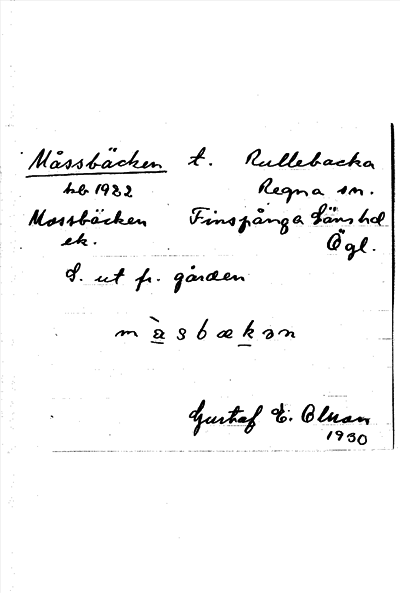 Måssbäcken t. Rullebacka
hb 1922 Regna sn.
Mossbäcken Finspånga Länshd
ek. Ögl.
L. ut fr. gården
m à s b æ k ə n
Gustaf E. Olsson
1930